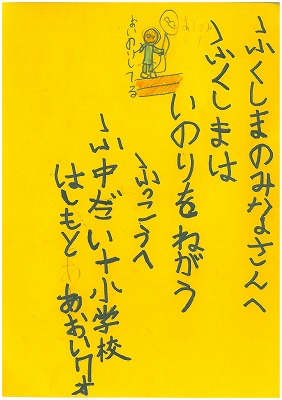 ふくしまのみなさんへ
ふくしまは
いのりをねがう
ふっこうへ
ふ中だい十小学校
はしもと あおい 7才
おいのりしてる